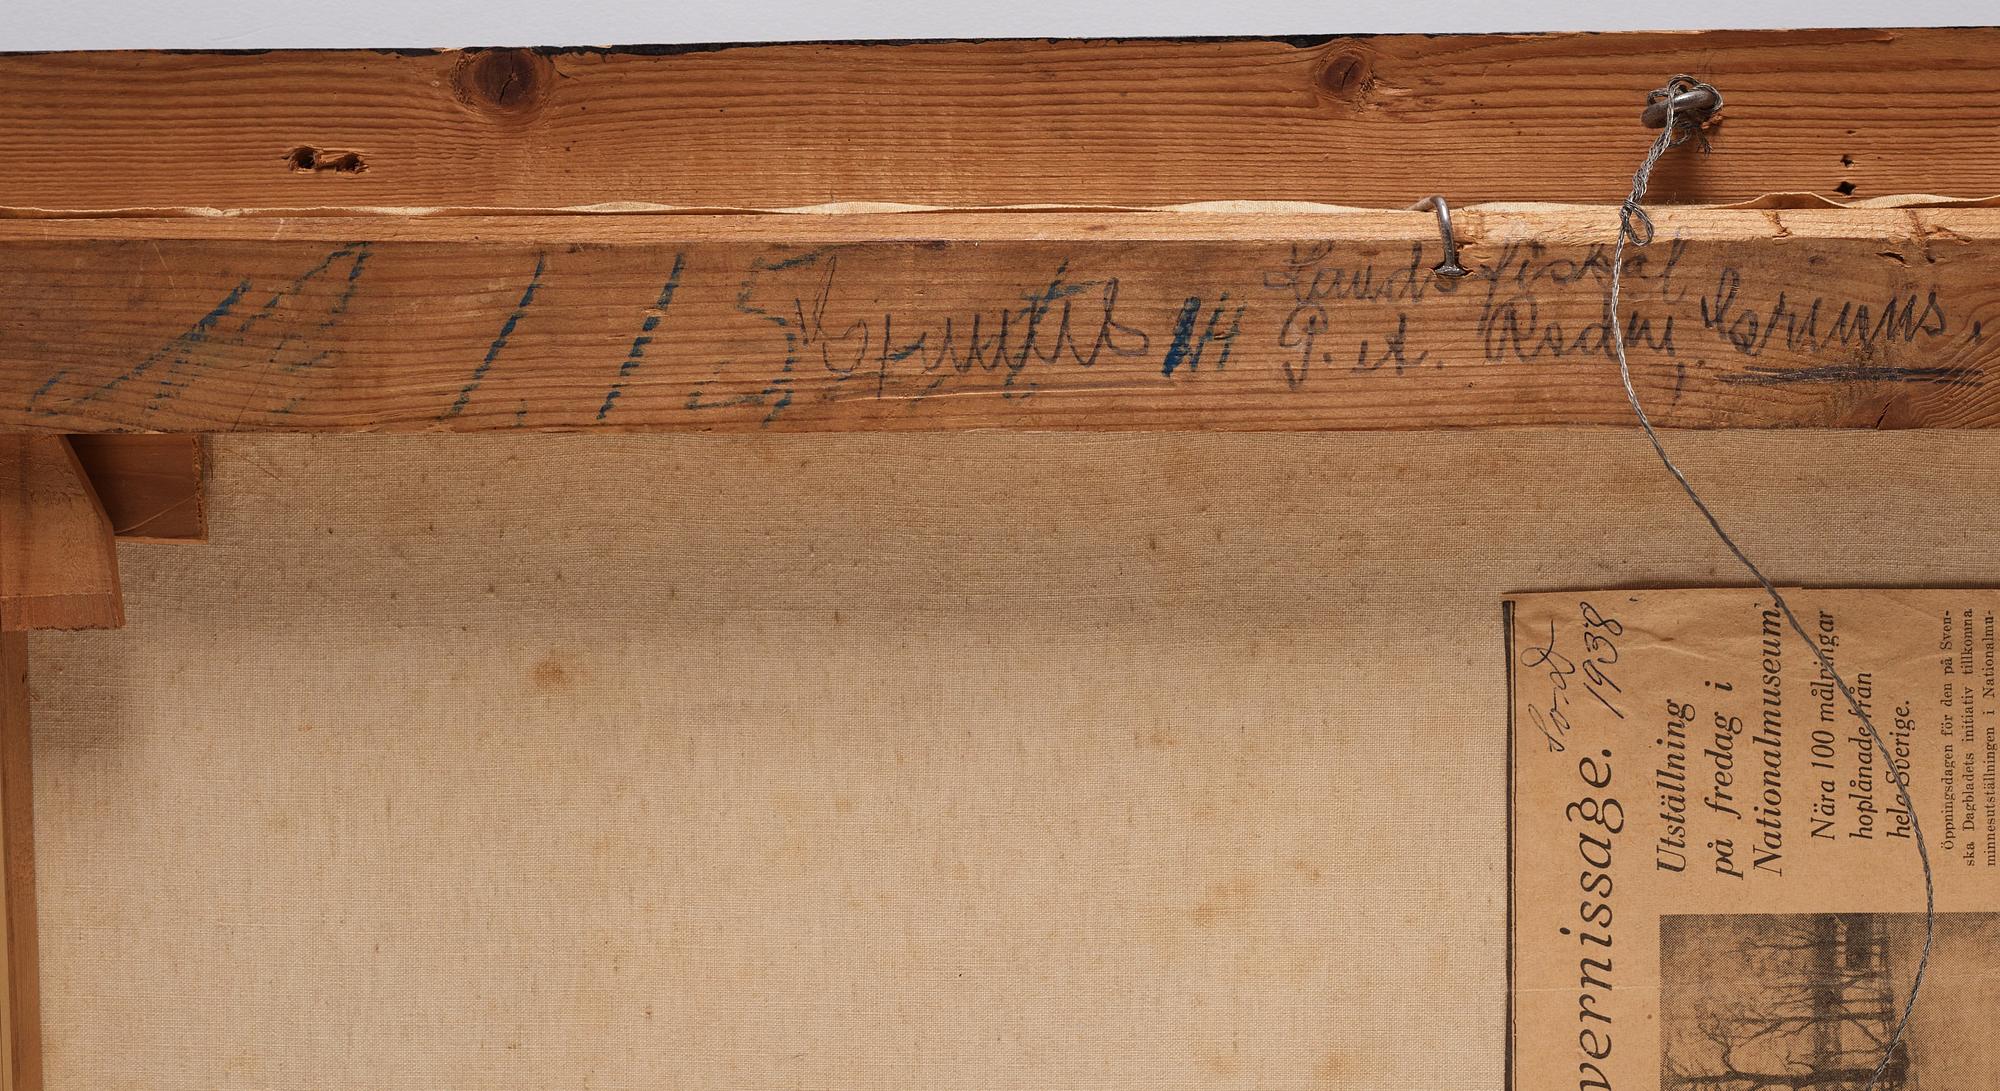 115
Landsfiskal
P. A. Rodin,
Sod
1938
vernissage.
Utställning
på fredag i
Nationalmuseum.
Nära 100 målningar
hoplånade från
hela Sverige.
Öppningsdagen för den på Sven-
ska Dagbladets initiativ tillkomna
minnesutställningen i Nationalmu-